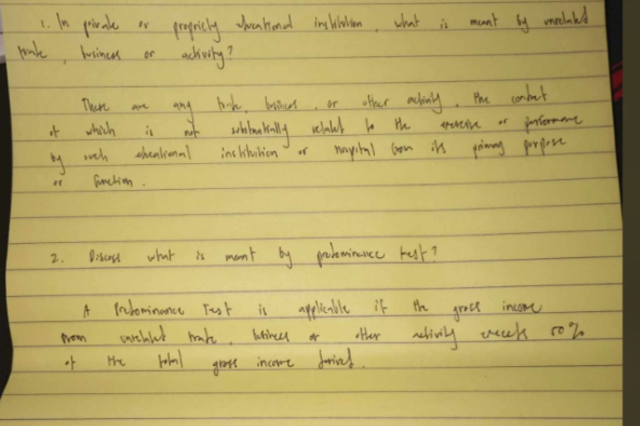 1. In private or propriety educational institution, what is meant by unrelated
trade, business or activity?
There are any trade, business, or other activity, the conduct
of which is not substantially related to the exercise or performance
by such educational institution or hospital its primary purpose
or function.
2. Discuss what is meant by predominance test?
A Predominance Test is applicable if the gross income
from unrelated trade, business or other activity exceeds 50%
of the total gross income derived.